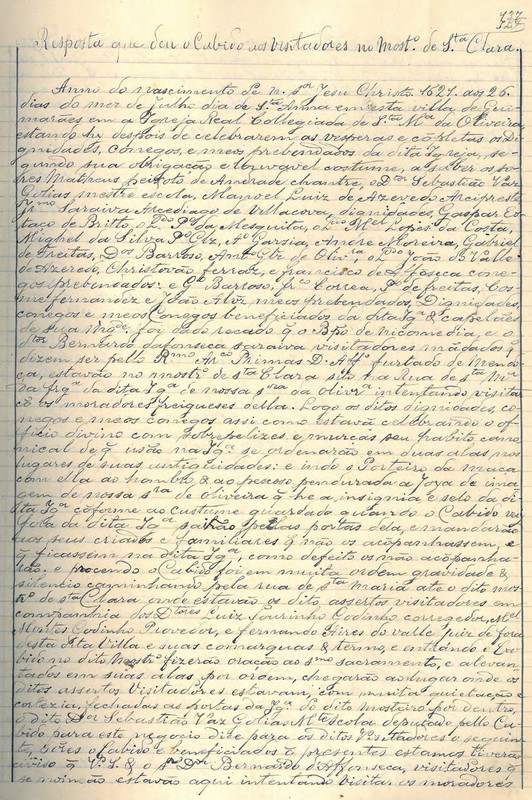 Resposta que deu o Cabido aos visitadores no Mostº de Sta Clara.
Anno do nascimento de n. sor Jesu Christo 1627. aos 26.
dias do mez de Julho dia de Sta Anna em esta villa de Gui
marães em a Igreja Real Collegiada de Sta Ma da Oliveira
estando hy despois de celebrarem as vesperas e cõpletas os Di
gnidades, Conegos, e meos prebendados da dita Igreja, se
guindo sua obrigação e louvavel costume, a saber os so
res Matheus peixoto de Andrade chantre, o Dtor Sebastião Vaz
Golias mestre escola, Manoel Luiz de Azevedo Arcipreste
Saraiva Acediago de Villacova, dignidades, Gaspar Co
laço de Britto, o Ldo Po da Mesquita, o Ldo Mel Lopes da Costa,
Mighel da Silva, Po Glz, Ao Garsia, Andre Moreira, Gabriel
de Freitas, Dos Barroso, Anto Glz de Olivra, o Ldo João do Valle
de Azeredo, Christovão ferraz, e francisco de Afõseca cone
gos prebendados: e Go Barroso, Correa, Po de freitas, Cos
me fernandez e João Alvz meos prebendados, Dignidades,
conegos e meos Conegos beneficiados da dita Iga & capelães
de Sua Mgde, foi dado recado q o Bpo de Nicomedia, e o
dtor Bernardo dafonseca saraiva visitadores mãdados q
dizem ser pello Rmo Arco Primas D. Affo furtado de Mendo
ça, estavão no mostro de sta Clara sito na Rua de sta Ma
da frga da dita Iga de nossa sra da olivra intentando visitar
ẽ os moradores freigueses della. Logo os ditos dignidades, co
negos e meos conegos assi como estavã celebrando o of
ficio divino com sobrepelizes e murcas seu habito cano
nical de q usão na Iga se ordenarão em duas alas nos
lugares de suas antiguidades: e indo o Porteiro da maça
com ella ao hombro, & ao pescoso pendurada a Joya da ima
gem de nossa sra de oliveira q he a insignia e selo da di
ta Iga cõforme ao custume guardado quando o Cabido vai
fora da dita Iga sairão pellas portas dela, e mandarão
aos seus criados e familiares q não os acõpanhassem, e
q ficassem na dita Iga, como defeito os não acõpanha
rão. e procendo o Cabido foi em muita ordem gravidade &
silencio caminhando pela rua de sta Maria até o dito mos
tro de sta Clara onde estavão os dito assertos visitadores em
companhia dos Dtores Luiz Lourinho Godinho corregedor, Mel
Mendes Godinho Provedor, e fernando Aires do valle Juiz de fora
desta dita Villa e suas comarquas & termo, e entrando o Ca
bido no dito Mostro fizerão oração ao smo sacramento, e alevan
tados em suas alas por ordem, chegarão ao lugar onde os
ditos assertos Visitadores estavam, com muita quietação e
cortezia, fechadas as portas da Iga do dito mosteiro por dentro,
o dito Dor Sebastião Vaz Golias Mte escola deputado pello Ca
bido para este negocio dice para os ditos Visitadores o seguin
te, sores o Cabido e beneficiados q presentes estamos tiverão
aviso q V. S. & o Dor Bernardo d'Affonseca, visitadores q
se nomeão estavão aqui intentando visitar os moradores